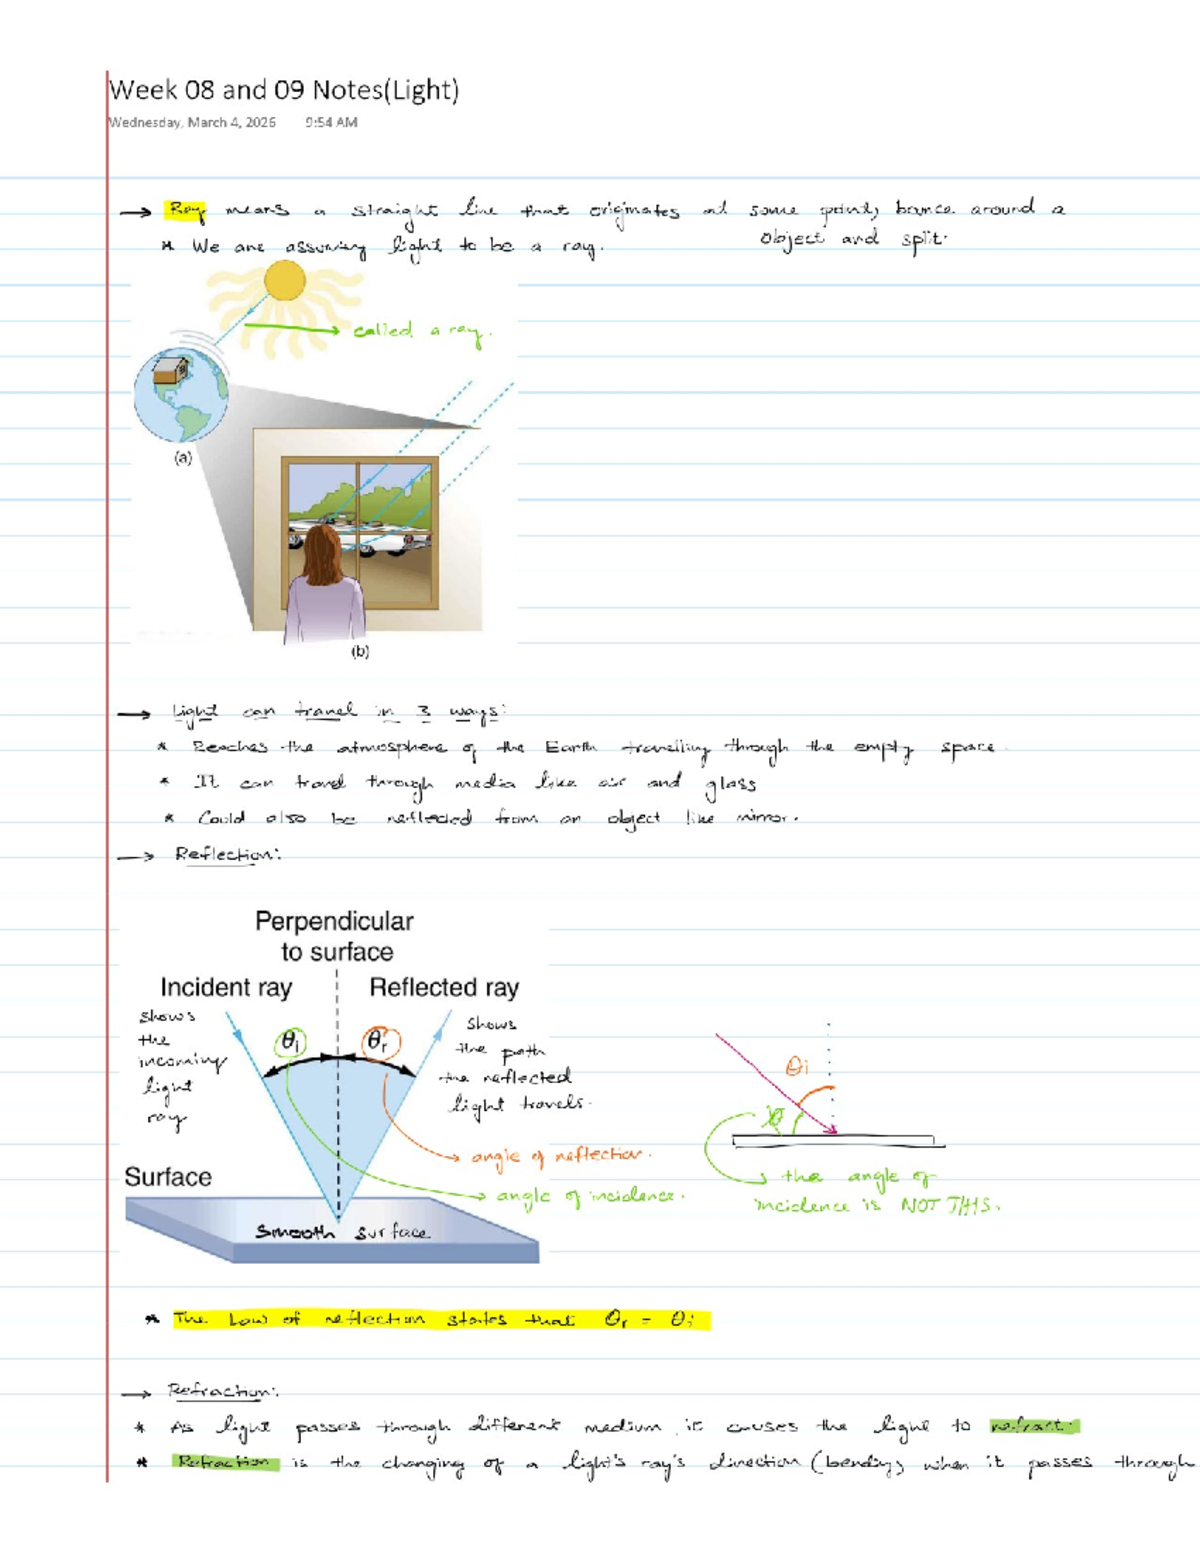 Week 08 and 09 Notes(Light)
Wednesday, March 4, 2026 9:54 AM
→ Ray means a straight line that originates at some point, bounce around a
object and split.
* We are assuming light to be a ray.
called a ray.
(a)
(b)
→ Light can travel in 3 ways:
* Reaches the atmosphere of the Earth travelling through the empty space.
* It can travel through media like air and glass
* Could also be reflected from an object like mirror.
→ Reflection:
Perpendicular
to surface
Incident ray
Reflected ray
shows
the
incoming
light
ray
θi
θr
shows
the path
the reflected
light travels.
→ angle of reflection.
→ angle of incidence.
Surface
Smooth surface
θi
θ
→ the angle of
incidence is NOT THIS.
* The Law of reflection states that θr = θi
→ Refraction:
* As light passes through different medium, it causes the light to refract.
* Refraction is the changing of a light's ray's direction (bending) when it passes through